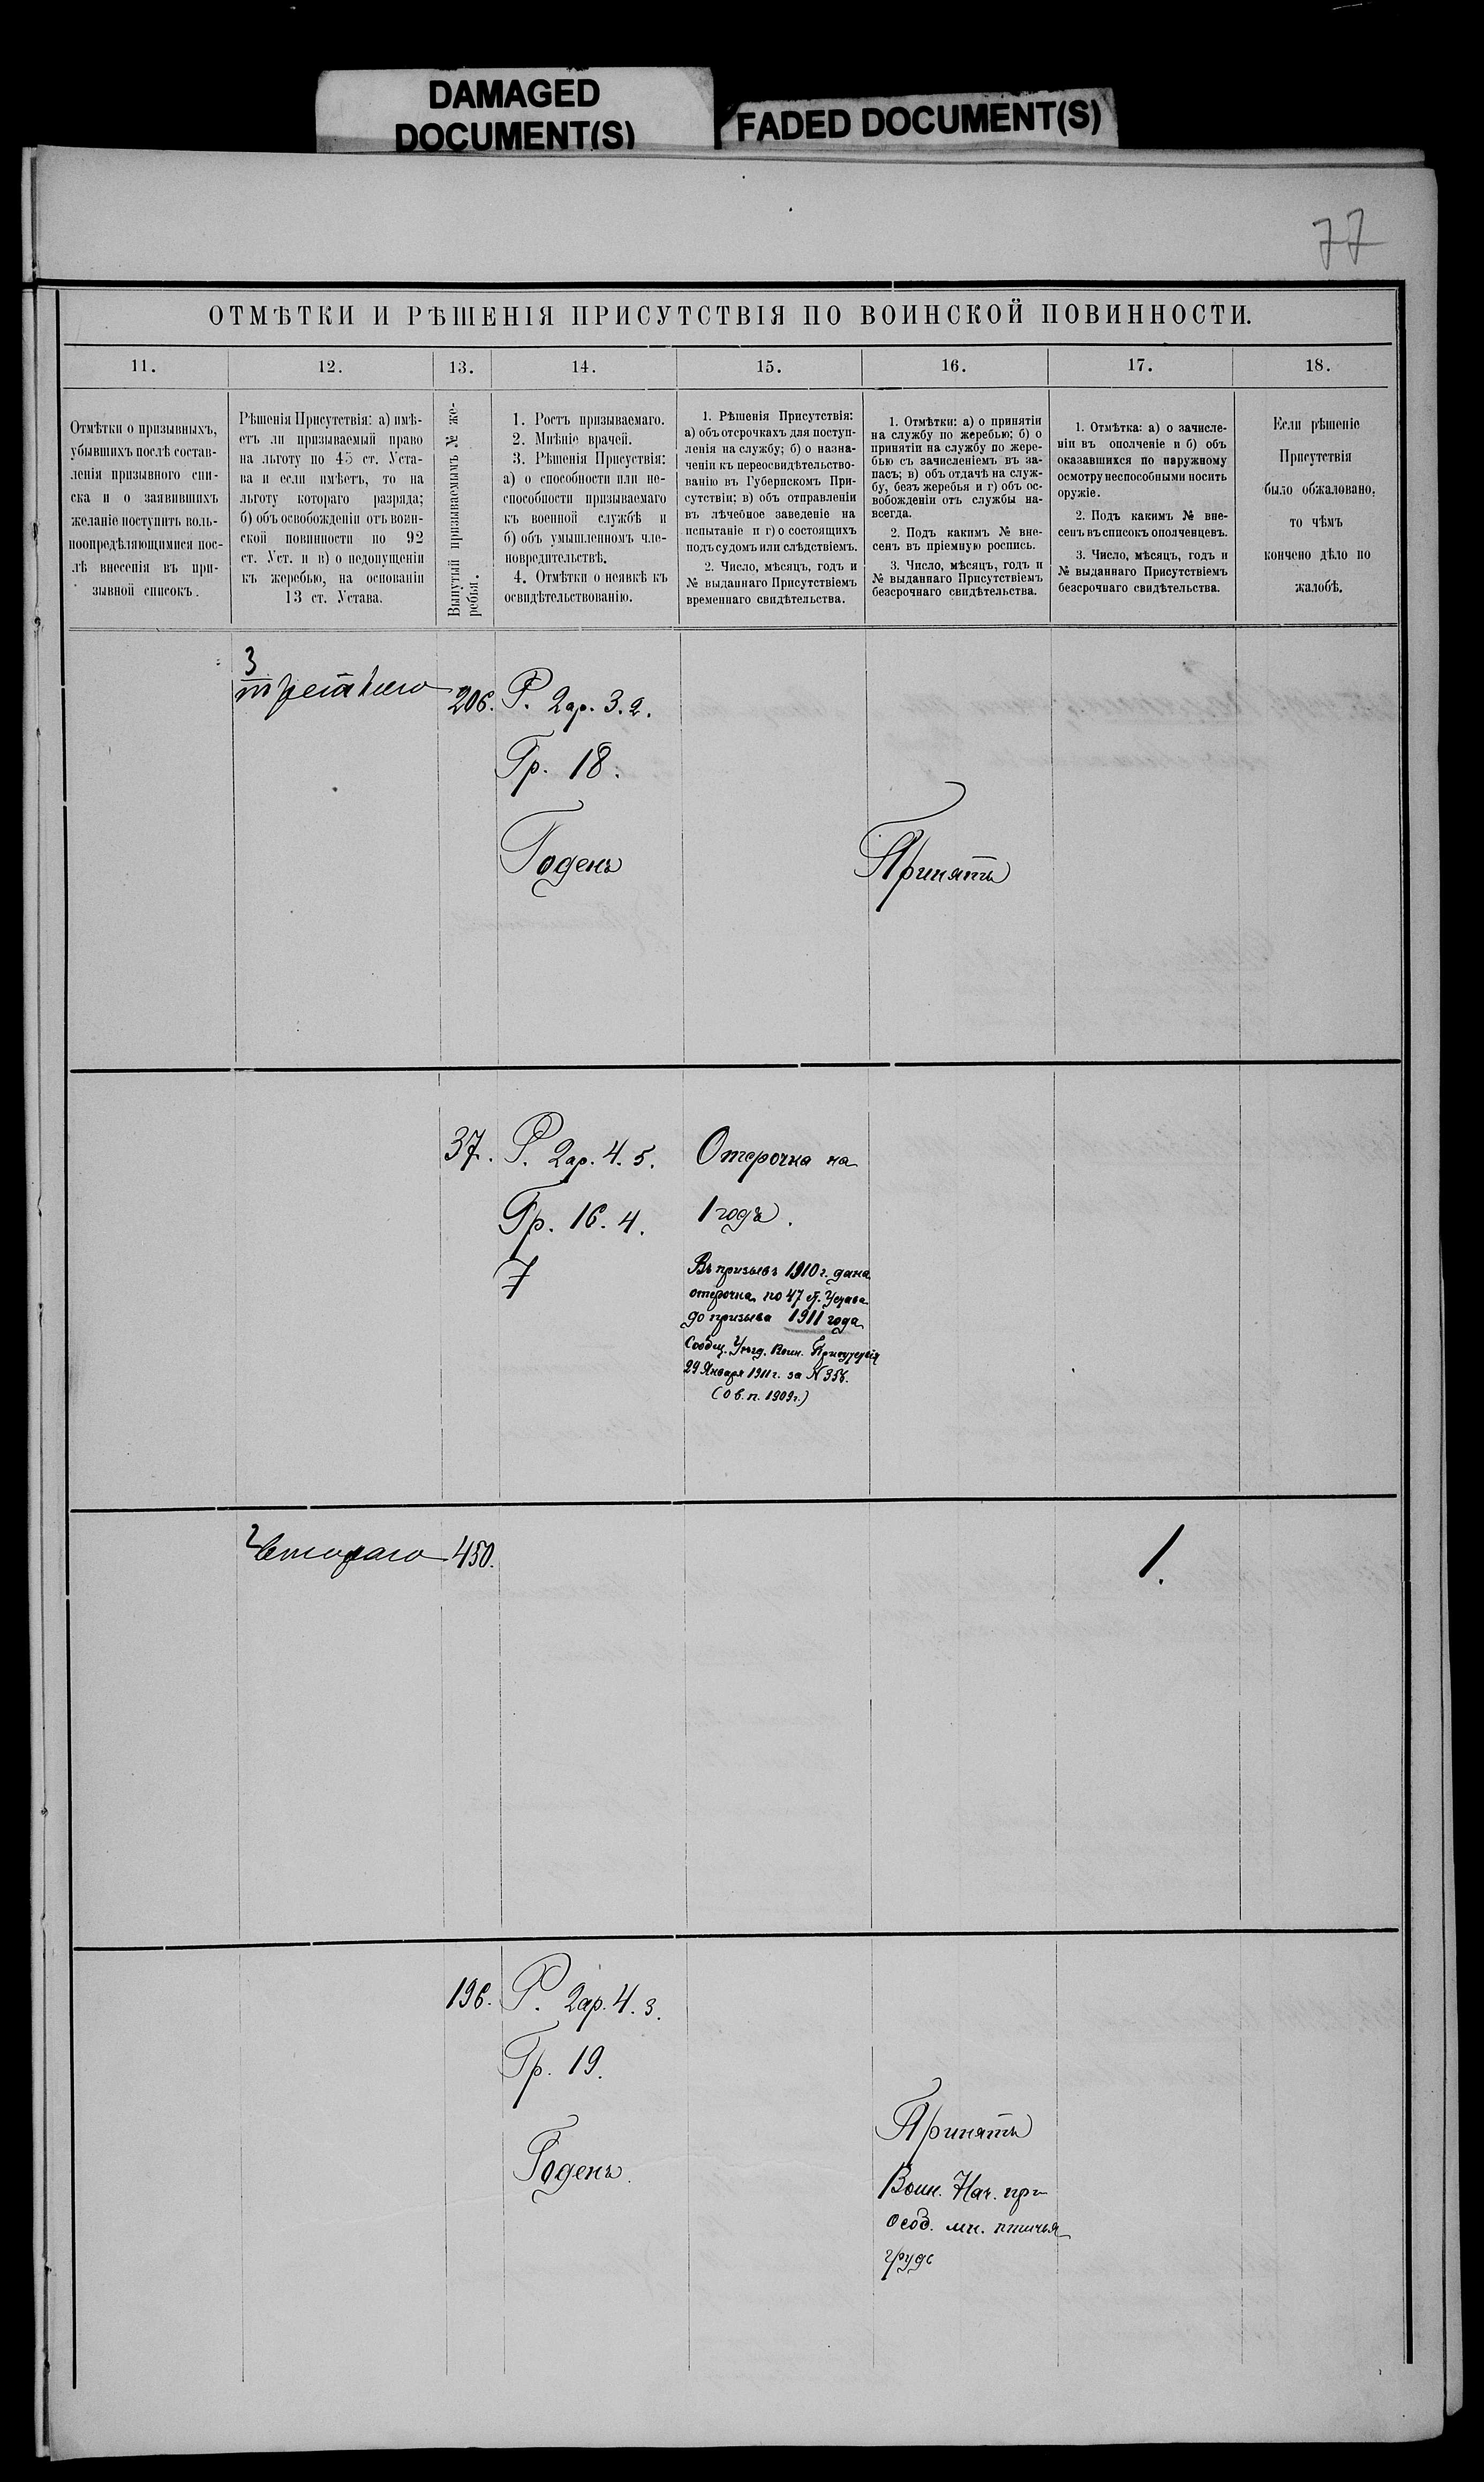 DAMAGED
DOCUMENT(S)
FADED DOCUMENT(S)
77
ОТМѢТКИ И РѢШЕНІЯ ПРИСУТСТВІЯ ПО ВОИНСКОЙ ПОВИННОСТИ.
11.
12.
13.
14.
15.
16.
17.
18.
Отмѣтки о призывныхъ,
убывшихъ послѣ состав-
ленія призывного спи-
ска и о заявившихъ
желаніе поступить воль-
ноопредѣляющимися пос-
лѣ внесенія въ при-
зывной списокъ.
Рѣшенія Присутствія: а) имѣ-
етъ ли призываемый право
на льготу по 45 ст. Уста-
ва и если имѣетъ, то на
льготу котораго разряда;
б) объ освобожденіи отъ воин-
ской повинности по 92
ст. Уст. и в) о недопущеніи
къ жеребью, на основаніи
13 ст. Устава.
Вынутый призываемымъ № же-
ребья.
1. Ростъ призываемаго.
2. Мнѣніе врачей.
3. Рѣшенія Присуствія:
а) о способности или не-
способности призываемаго
къ военной службѣ и
б) объ умышленномъ чле-
новредительствѣ.
4. Отмѣтки о неявкѣ къ
освидѣтельствованію.
1. Рѣшенія Присутствія:
а) объ отсрочкахъ для поступ-
ленія на службу; б) о назна-
ченіи къ переосвидѣтельство-
ванію въ Губернскомъ При-
сутствіи; в) объ отправленіи
въ лѣчебное заведеніе на
испытаніе и г) о состоящихъ
подъ судомъ или слѣдствіемъ.
2. Число, мѣсяцъ, годъ и
№ выданнаго Присутствіемъ
временнаго свидѣтельства.
1. Отмѣтки: а) о принятіи
на службу по жеребью; б) о
принятіи на службу по жере-
бью съ зачисленіемъ въ за-
пасъ; в) объ отдачѣ на служ-
бу, безъ жеребья и г) объ ос-
вобожденіи отъ службы на-
всегда.
2. Подъ какимъ № вне-
сенъ въ пріемную роспись.
3. Число, мѣсяцъ, годъ и
№ выданнаго Присутствіемъ
безсрочнаго свидѣтельства.
1. Отмѣтка: а) о зачисле-
ніи въ ополченіе и б) объ
оказавшихся по наружному
осмотру неспособными носить
оружіе.
2. Подъ какимъ № вне-
сенъ въ списокъ ополченцевъ.
3. Число, мѣсяцъ, годъ и
№ выданнаго Присутствіемъ
безсрочнаго свидѣтельства.
Если рѣшеніе
Присутствія
было обжаловано,
то чѣмъ
кончено дѣло по
жалобѣ.
3
третьяго
206.
Р. 2ар. 3. 2.
Гр. 18.
Годенъ
Принятъ
37.
Р. 2ар. 4. 5.
Гр. 16. 4.
Отсрочка на
1 годъ.
Въ призывъ 1910 г. дана
отсрочка по 47 ст. Устава
до призыва 1911 года
Сообщ. Уѣзд. Воин. Присутствія
29 Января 1911 г. за №356.
(О в. п. 1909 г.)
450.
1.
196.
Р. 2ар. 4. 3.
Гр. 19.
Годенъ.
Принятъ
Воин. Нач. при
особ. мн. птичья
грудь